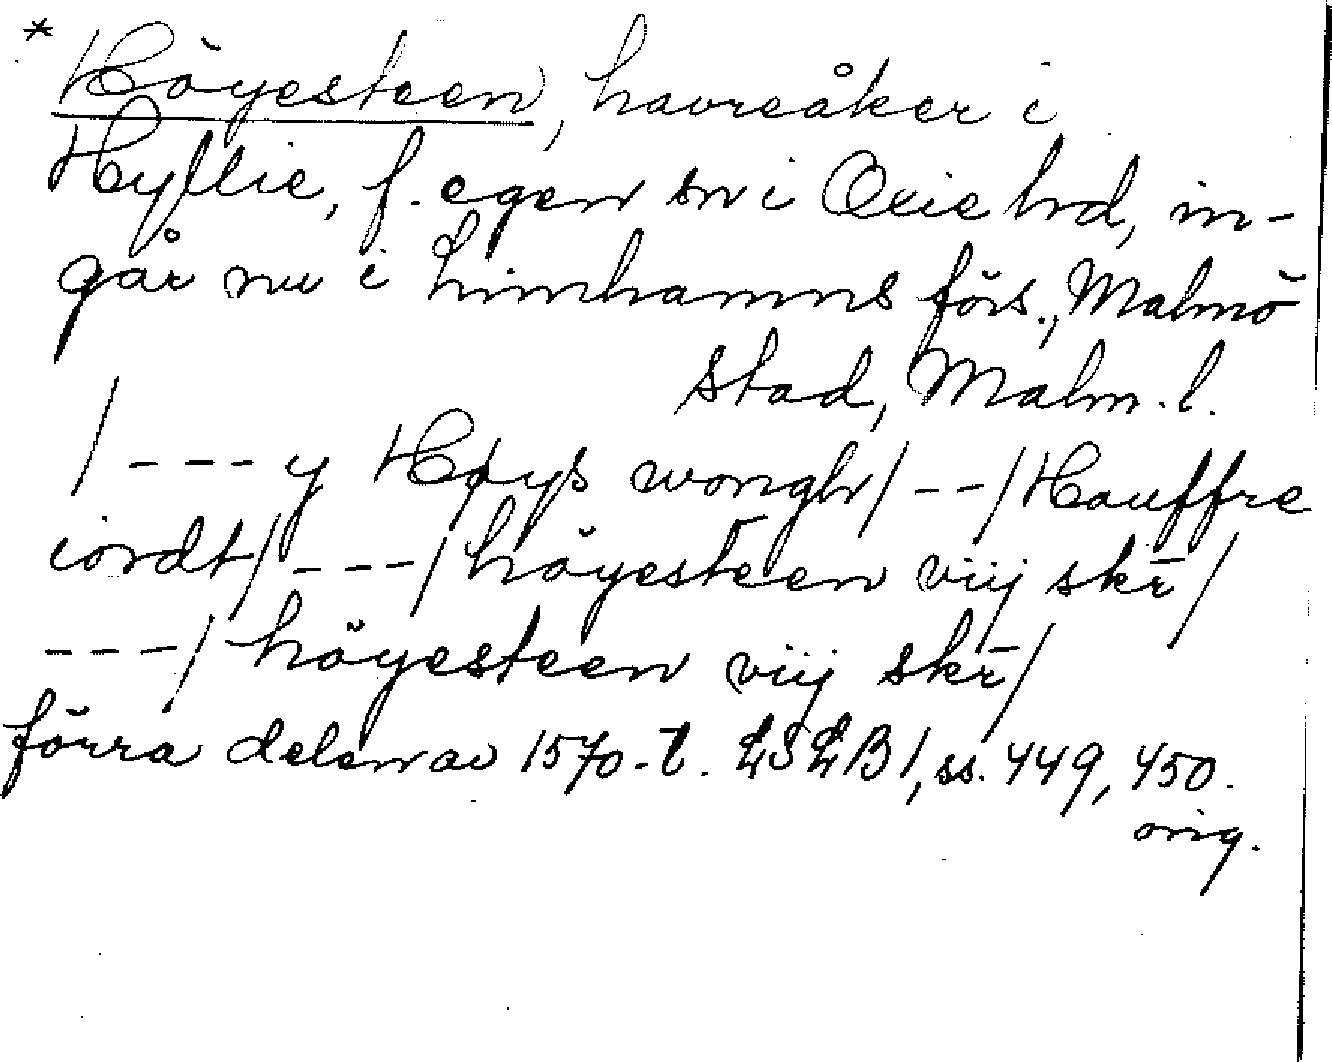 * Höyesteen, havreåker i
Hyllie, f. egen sn i Oxie hd, in-
går nu i Limhamns förs., Malmö
stad, Malm. l.
/ --- y Høys wongh / -- / Hauffre
iordt / --- / höyesteen viij skr̄ /
--- / höyesteen viij skr̄ /
förra delen av 1570-t. LSLB 1, ss. 449, 450.
orig.